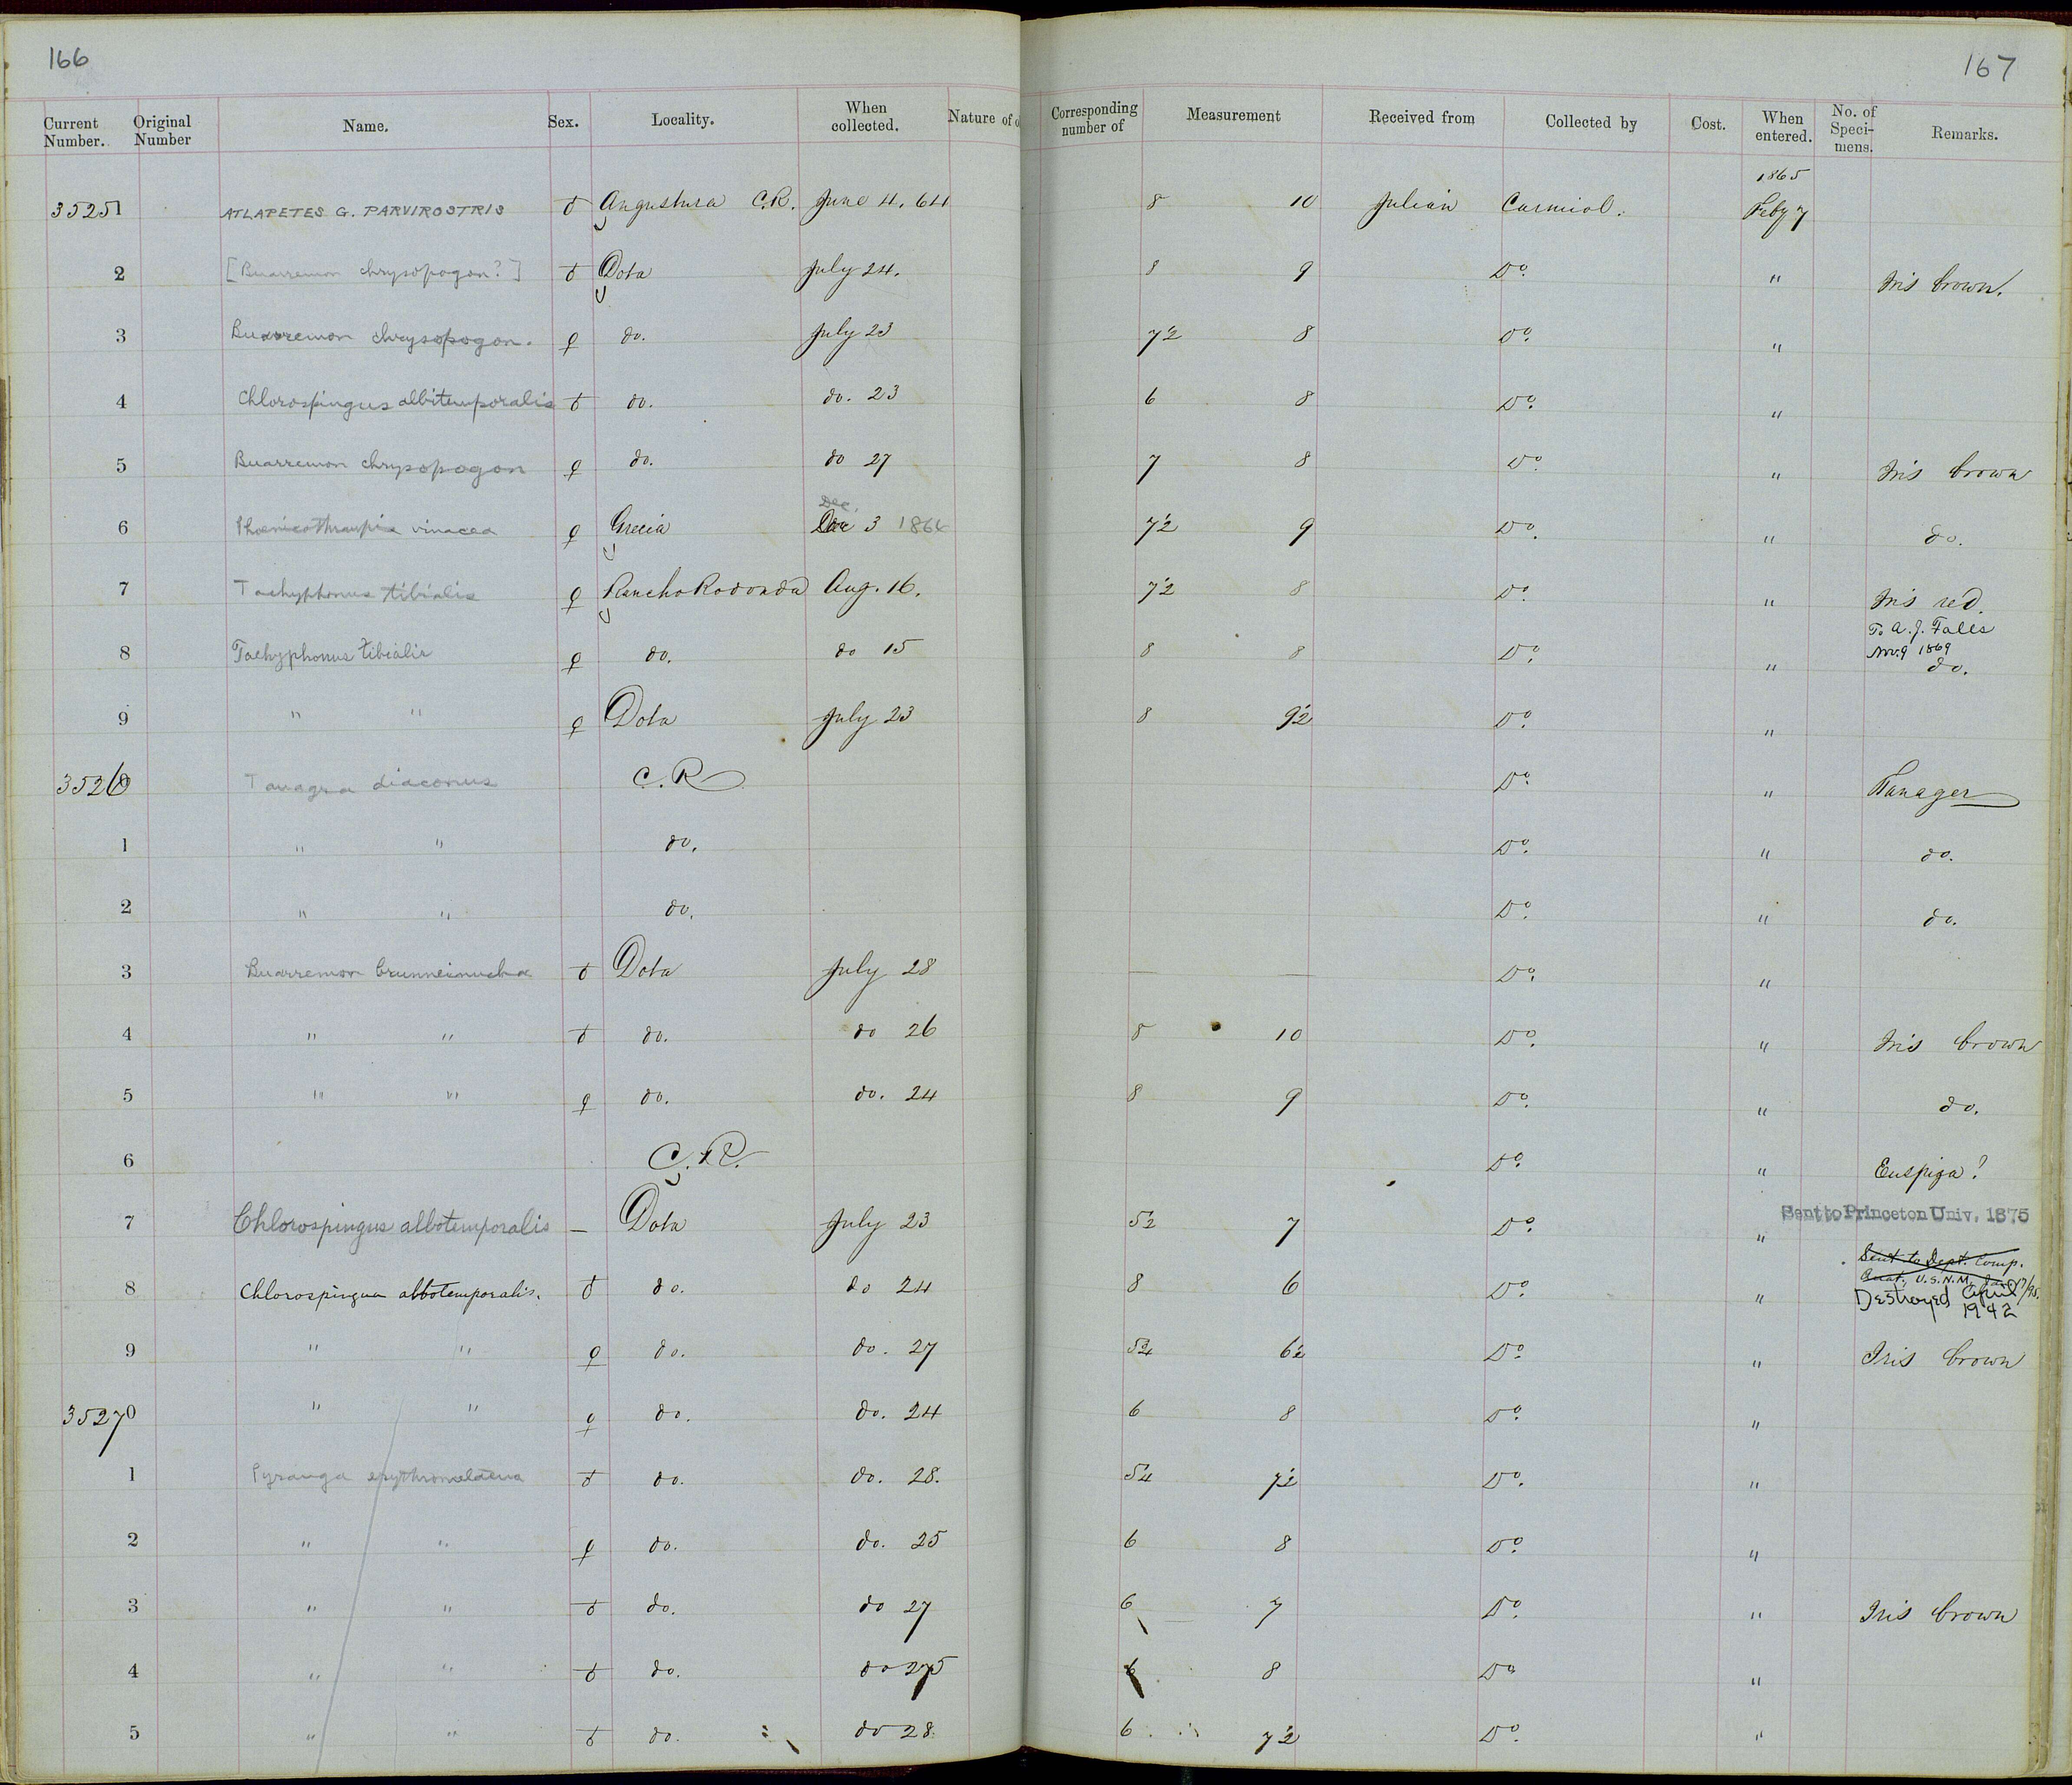 166
167
Current Number. Original Number Name. Sex. Locality. When collected. Nature of Corresponding number of Measurement Received from Collected by Cost. When entered. No. of Speci-mens. Remarks.
1865
35251 ATLAPETES G. PARVIROSTRIS ♂ Angustura C.R. June 4. 64 8 10 Julian Carmiol. Feby 7
2 [Buarremon chrysopogon?] ♂ Dota July 24. 8 9 Do. " Iris brown.
3 Buarremon chrysopogon. ♀ do. July 23 7½ 8 Do. "
4 Chlorospingus albitemporalis ♂ do. do. 23 6 8 Do. "
5 Buarremon chrysopogon ♀ do. do 27 7 8 Do. " Iris brown
Dec.
6 Phoenicothraupis vinacea ♀ Grecia Dec 3 1864 7½ 9 Do. " do.
7 Tachyphonus tibialis ♀ Rancho Rodondo Aug. 16. 7½ 8 Do. " Iris red.
To A. J. Falls
Nov. 9 1869
8 Tachyphonus tibialis ♀ do. do 15 8 8 Do. " do.
9 " " ♀ Dota July 23 8 9½ Do. "
35260 Tanagra diaconus C.R. Do. " Tanager
1 " " do. Do. " do.
2 " " do. Do. " do.
3 Buarremon brunneinucha ♂ Dota July 28 — — Do. "
4 " " ♂ do. do 26 8 10 Do. " Iris brown
5 " " ♀ do. do. 24 8 9 Do. " do.
6 C.R. Do. " Euspiza?
7 Chlorospingus albotemporalis — Dota July 23 5½ 7 Do. " Sent to Princeton Univ. 1875
Sent to Dept. Comp.
Anat., U.S.N.M. Jan. 17/95.
8 Chlorospingus albotemporalis. ♂ do. do 24 8 6 Do. " Destroyed April
1942
9 " " ♀ do. do. 27 5¾ 6½ Do. " Iris brown
35270 " " ♀ do. do. 24 6 8 Do. "
1 Pyranga erythromelaena ♂ do. do. 28. 5¼ 7½ Do. "
2 " " ♀ do. do. 25 6 8 Do. "
3 " " ♂ do. do 27 6 7 Do. " Iris brown
4 " " ♂ do. do 275 6 8 Do "
5 " " ♂ do. do 28 6 7½ Do. "